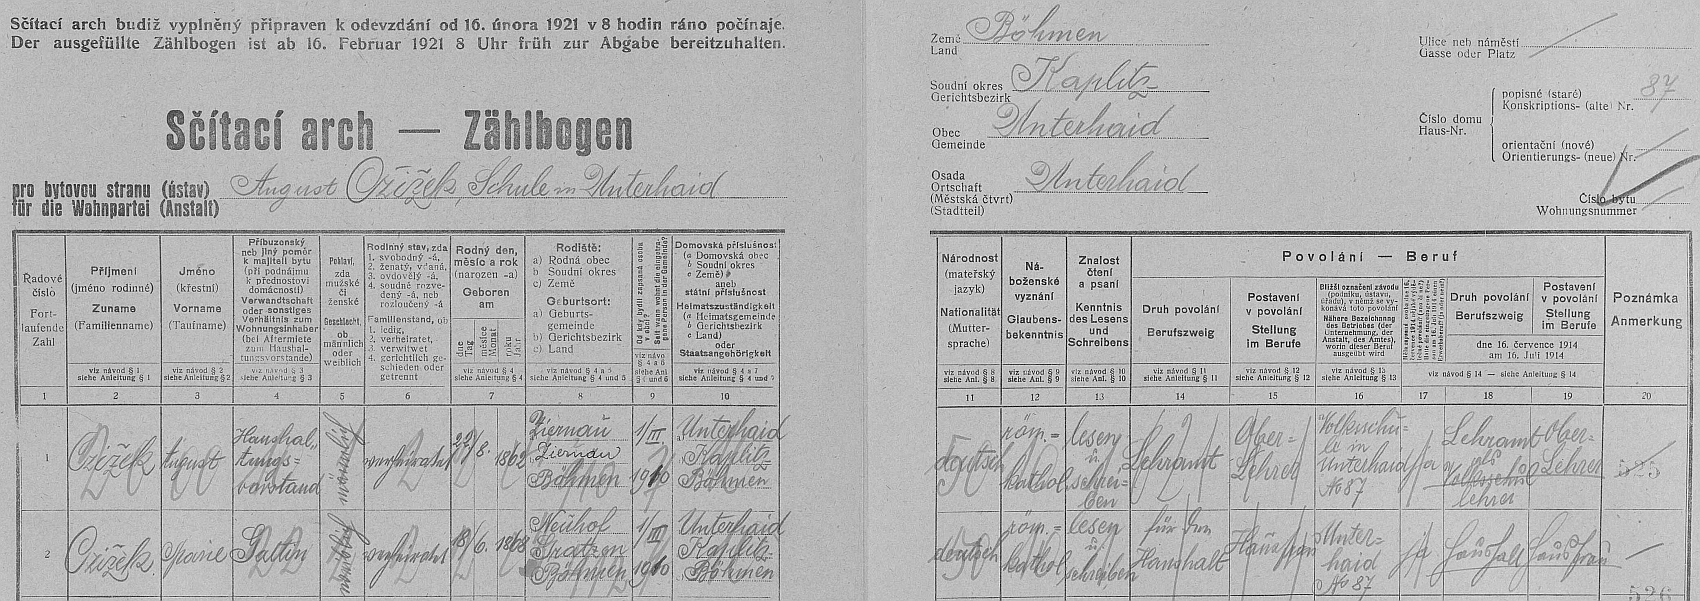 Sčítací arch budiž vyplněný připraven k odevzdání od 16. února 1921 v 8 hodin ráno počínaje.
Der ausgefüllte Zählbogen ist ab 16. Februar 1921 8 Uhr früh zur Abgabe bereitzuhalten.
Sčítací arch — Zählbogen
pro bytovou stranu (ústav)
für die Wohnpartei (Anstalt)
August Čížek, Schule in Unterhaid
Země
Land
Böhmen
Soudní okres
Gerichtsbezirk
Kaplitz
Obec
Gemeinde
Unterhaid
Osada
Ortschaft
(Městská čtvrť)
(Stadtteil)
Unterhaid
Ulice neb náměstí
Gasse oder Platz
Číslo domu
Haus-Nr.
popisné (staré)
Konskriptions- (alte) Nr.
87
orientační (nové)
Orientierungs- (neue) Nr.
Číslo bytu
Wohnungsnummer
Řadové číslo
Fortlaufende Zahl
Příjmení
(jméno rodinné)
Zuname
(Familienname)
viz návod § 1
siehe Anleitung § 1
Jméno
(křestní)
Vorname
(Taufname)
viz návod § 2
siehe Anleitung § 2
Příbuzenský
neb jiný poměr
k majiteli bytu
(při podnájmu
k přednostovi
domácnosti)
Verwandtschaft
oder sonstiges
Verhältnis zum
Wohnungsinhaber
(bei Aftermiete
zum Haushal-
tungsvorstande)
viz návod § 3
siehe Anleitung § 3
Pohlaví,
zda
mužské
či
ženské
Geschlecht,
ob
männlich
oder
weiblich
Rodinný stav, zda
1. svobodný -á,
2. ženatý, vdaná,
3. ovdovělý -á,
4. soudně rozve-
dený -á, neb
rozloučený -á
Familienstand, ob
1. ledig,
2. verheiratet,
3. verwitwet
4. gerichtlich ge-
schieden oder
getrennt
Rodný den,
měsíc a rok
(narozen -a)
Geboren
am
dne
Tag
měsíce
Monat
roku
Jahr
viz návod § 4
siehe Anleitung § 4
Rodiště:
a) Rodná obec
b) Soudní okres
c) Země
Geburtsort:
a) Geburts-
gemeinde
b) Gerichtsbezirk
c) Land
siehe Anleitung § 4 und 5
Domovská příslušnost
(a Domovská obec
b Soudní okres
c Země)
aneb
státní příslušnost
Heimatszuständigkeit
(a Heimatsgemeinde
b Gerichtsbezirk
c Land)
oder
Staatsangehörigkeit
viz návod § 4 a 7
siehe Anleitung § 4 und 7
Národnost
(mateřský
jazyk)
Nationalität
(Mutter-
sprache)
viz návod § 8
siehe Anl. § 8
Ná-
boženské
vyznání
Glaubens-
bekenntnis
viz návod § 9
siehe Anl. § 9
Znalost
čtení
a psaní
Kenntnis
des Lesens
und
Schreibens
viz návod § 10
siehe Anl. § 10
Povolání — Beruf
Druh povolání
Berufszweig
viz návod § 11
siehe Anleitung § 11
Postavení
v povolání
Stellung
im Berufe
viz návod § 12
siehe Anleitung § 12
Bližší označení závodu
(podniku, ústavu,
úřadu), v němž se vy-
konává toto povolání
Nähere Bezeichnung
des Betriebes (der
Unternehmung, der
Anstalt, des Amtes),
worin dieser Beruf
ausgeübt wird
viz návod § 13
siehe Anleitung § 13
Druh povolání
Berufszweig
Postavení
v povolání
Stellung
im Berufe
dne 16. července 1914
am 16. Juli 1914
viz návod § 14 — siehe Anleitung § 14
Poznámka
Anmerkung
1 2 3 4 5 6 7 8 9 10 11 12 13 14 15 16 17 18 19 20
1 Čížek August Haushaltungsvorstand männlich verheiratet 22/6. 1862 Ziernau Ziernau Böhmen 1/III 1910 Unterhaid Kaplitz Böhmen deutsch röm.=kathol. lesen u. schreiben Lehramt Ober=Lehrer Volksschule in Unterhaid No 87 ja Lehramt als Volksschullehrer Ober=Lehrer
2 Čížek Marie Gattin weiblich verheiratet 18/6. 1868 Neuhof Gratzen Böhmen 1/III 1910 Unterhaid Kaplitz Böhmen deutsch röm.=kathol. lesen u. schreiben für den Haushalt Hausfrau Unterhaid No 87 ja Haushalt Hausfrau
526